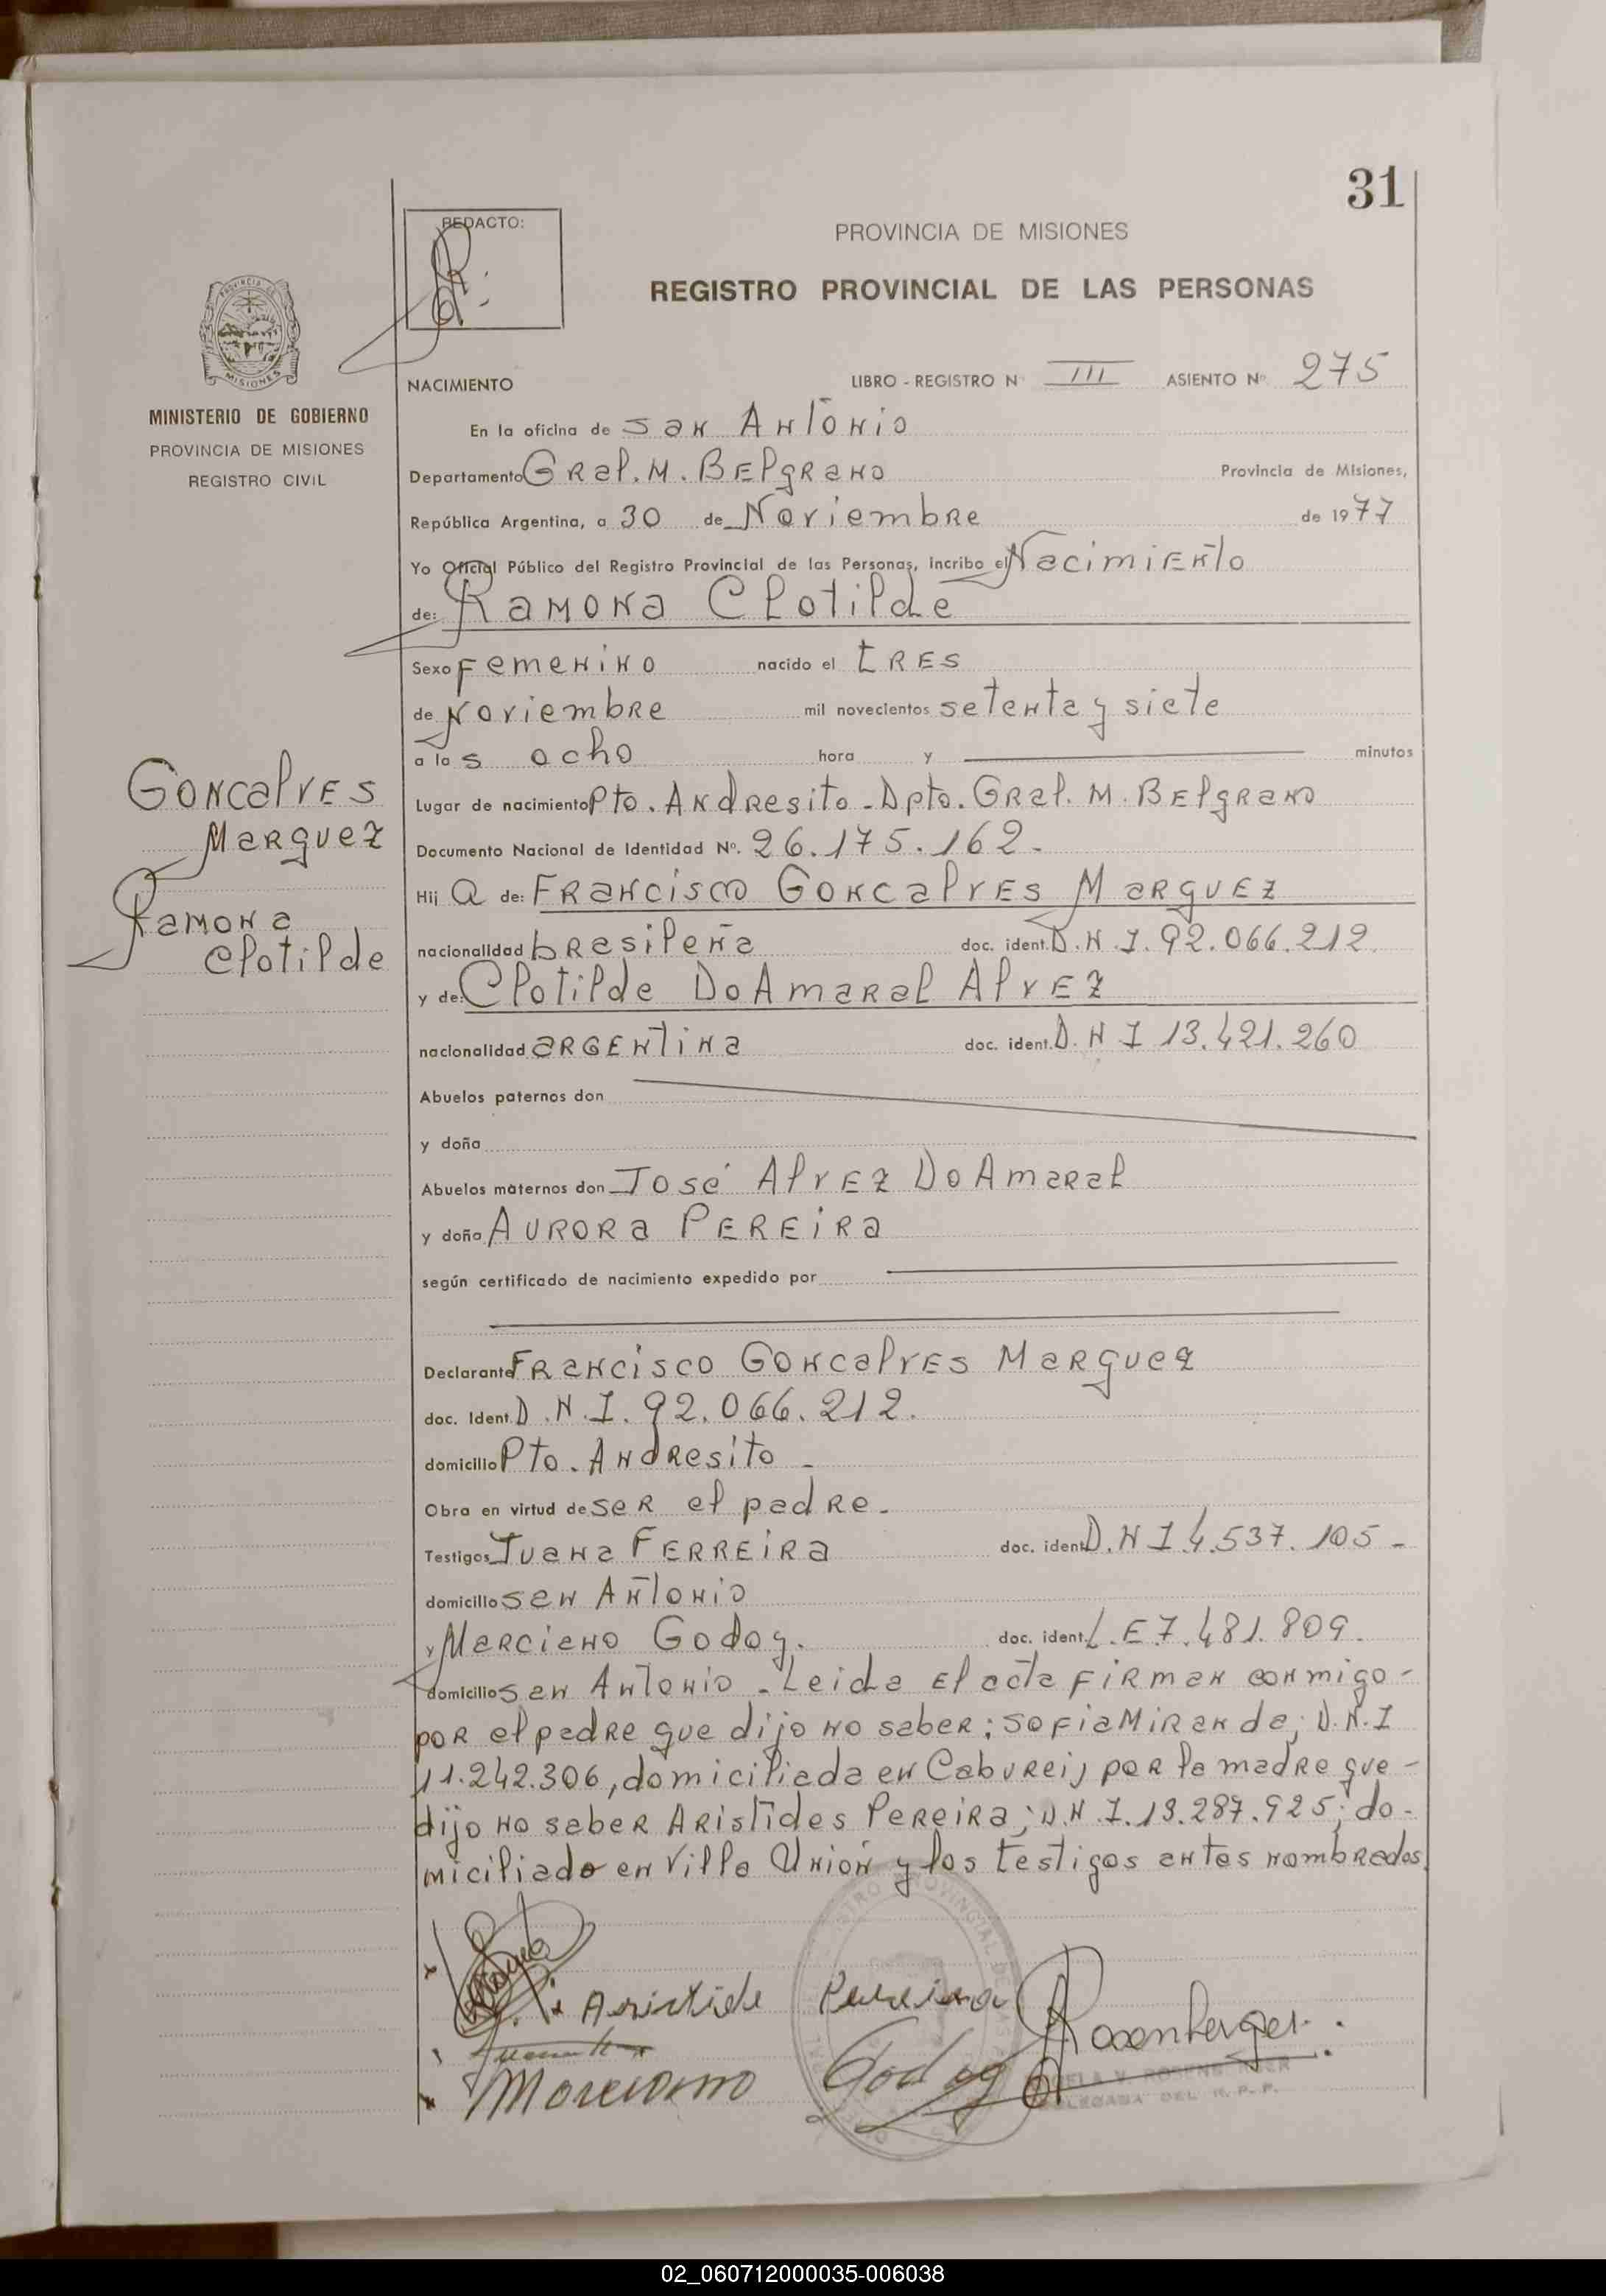 31
REDACTO:
PROVINCIA DE MISIONES
REGISTRO PROVINCIAL DE LAS PERSONAS
MISIONES
MINISTERIO DE GOBIERNO
PROVINCIA DE MISIONES
REGISTRO CIVIL
NACIMIENTO LIBRO - REGISTRO N° III ASIENTO N° 275
En la oficina de San Antonio
Departamento Gral. M. Belgrano Provincia de Misiones,
República Argentina, a 30 de Noviembre de 1977
Yo Oficial Público del Registro Provincial de las Personas, incribo el Nacimiento
de: Ramona Clotilde
Sexo Femenino nacido el tres
de Noviembre mil novecientos setenta y siete
a las ocho hora y minutos
Goncalves
Marquez
Ramona
Clotilde
Lugar de nacimiento Pto. Andresito - Dpto. Gral. M. Belgrano
Documento Nacional de Identidad N°. 26.175.162.
Hij a de: Francisco Goncalves Marquez
nacionalidad brasileña doc. ident. D.N.I. 92.066.212.
y de: Clotilde Do Amaral Alvez
nacionalidad argentina doc. ident. D.N I 13.421.260
Abuelos paternos don
y doña
Abuelos maternos don José Alvez Do Amaral
y doña Aurora Pereira
según certificado de nacimiento expedido por
Declarante Francisco Goncalves Marquez
doc. Ident. D.N.I. 92.066.212.
domicilio Pto. Andresito -
Obra en virtud de ser el padre.
Testigos Juana Ferreira doc. ident. D.N I 4.537.105 -
domicilio San Antonio
y Marciano Godoy. doc. ident. L.E 7.481.809.
domicilio San Antonio - Leida el acta firman conmigo -
por el padre que dijo no saber; Sofia Miranda; D.N.I
11.242.306, domiciliada en Cabureij por la madre que -
dijo no saber Aristides Pereira; D.N.I. 13.287.925; do-
miciliado en Villa Unión y los testigos antes nombrados.
Aristide Pereira
Rosenberger
Marciano Godoy
DEL R.P.P.
02_060712000035-006038